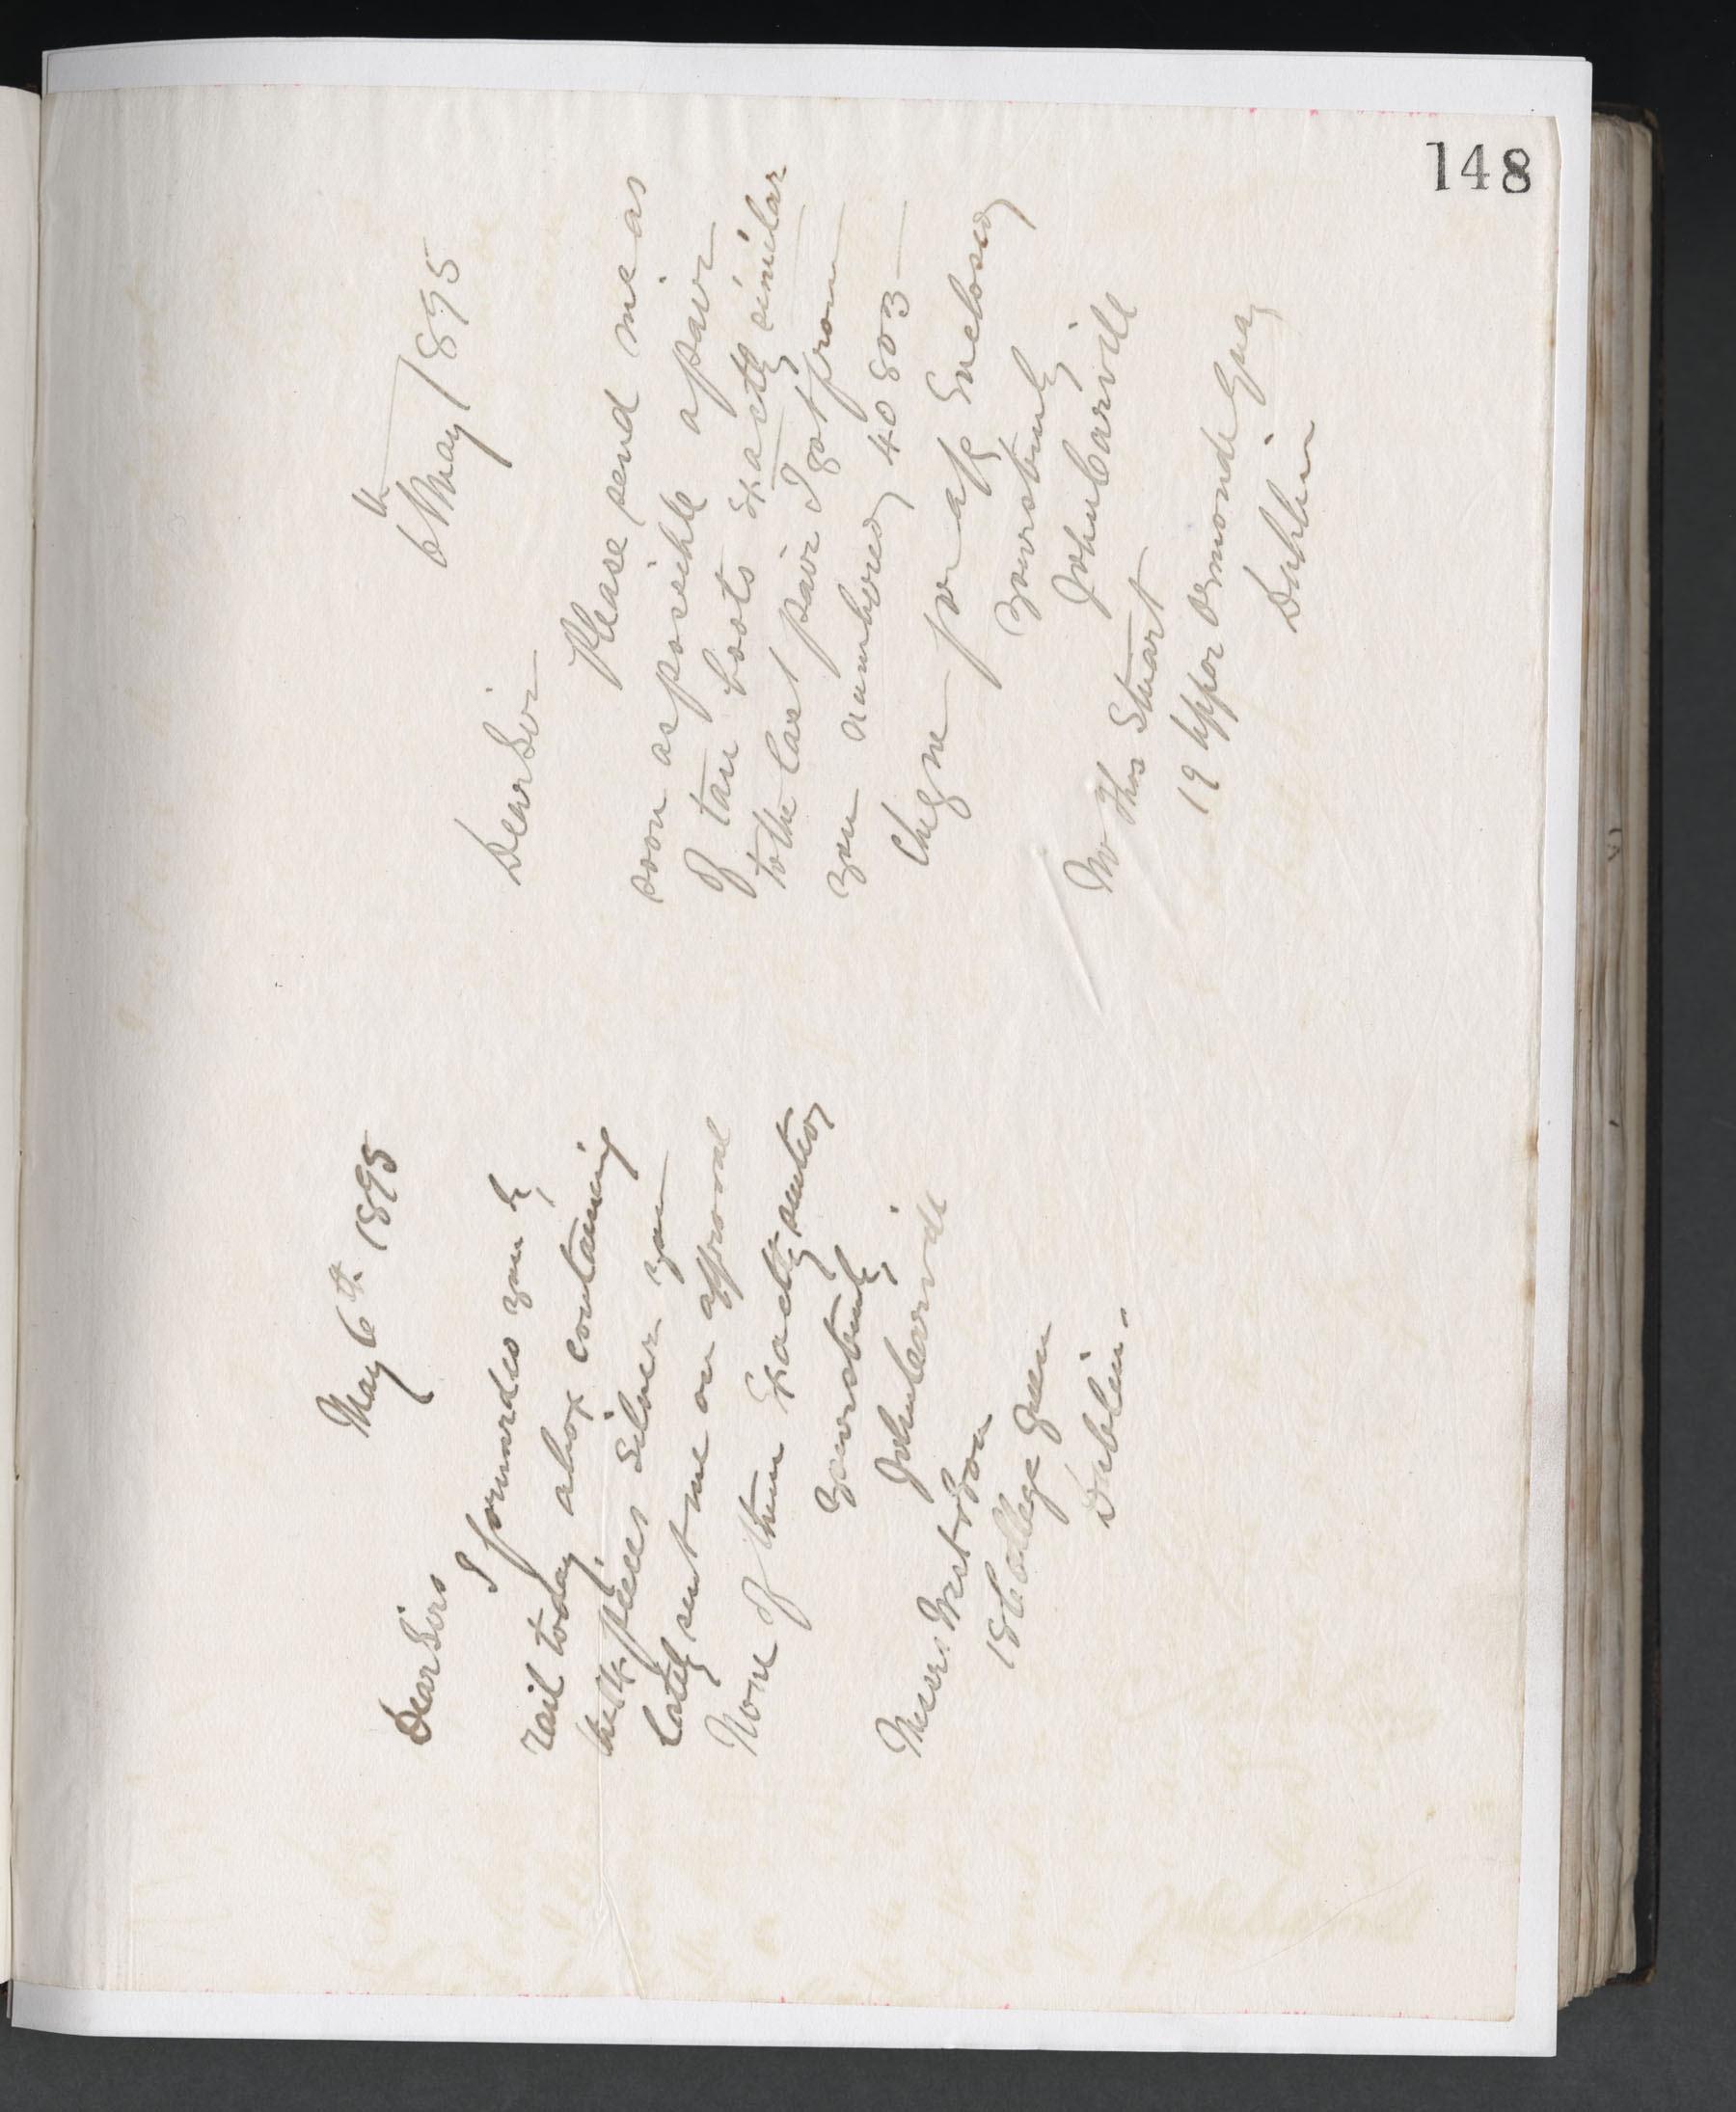 148
May 6th 1895
Dear Sirs
I forwarded you by
rail today a box containing
the 14 pieces silver you
lately sent me on approval
None of them exactly suited
Yours truly
John Carvill
Messrs West & Son
18 College Green
Dublin.
6th May 1895
Dear Sir
Please send me as
soon as possible a pair
of tan boots exactly similar
to the last pair I got from
you numbered 40803
Cheque for a/c enclosed
Yours truly
John Carvill
Mr Thos Stuart
19 Upper Ormonde Quay
Dublin